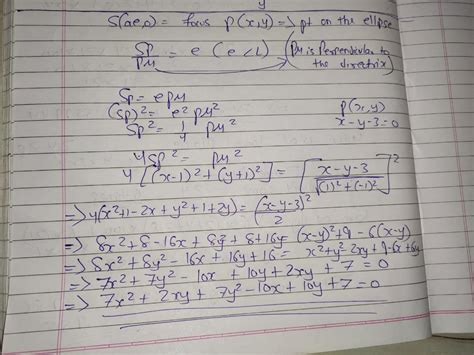 S(ae,0) = focus P(x,y) => pt on the ellipse
SP/PM = e (e<1) (PM is Perpendicular to the directrix)
SP = e PM
(SP)² = e² PM²
SP² = 1/4 PM²
P(x,y)
x-y-3=0
4SP² = PM²
4[(x-1)²+(y+1)²] = [x-y-3/√(1)²+(-1)²]²
=> 4(x²+1-2x+y²+1+2y) = (x-y-3)²/2
=> 8x²+8-16x+8y²+8+16y = (x-y)²+9-6(x-y)
=> 8x²+8y²-16x+16y+16 = x²+y²-2xy+9-6x+6y
=> 7x²+7y²-10x+10y+2xy+7=0
=> 7x²+2xy+7y²-10x+10y+7=0